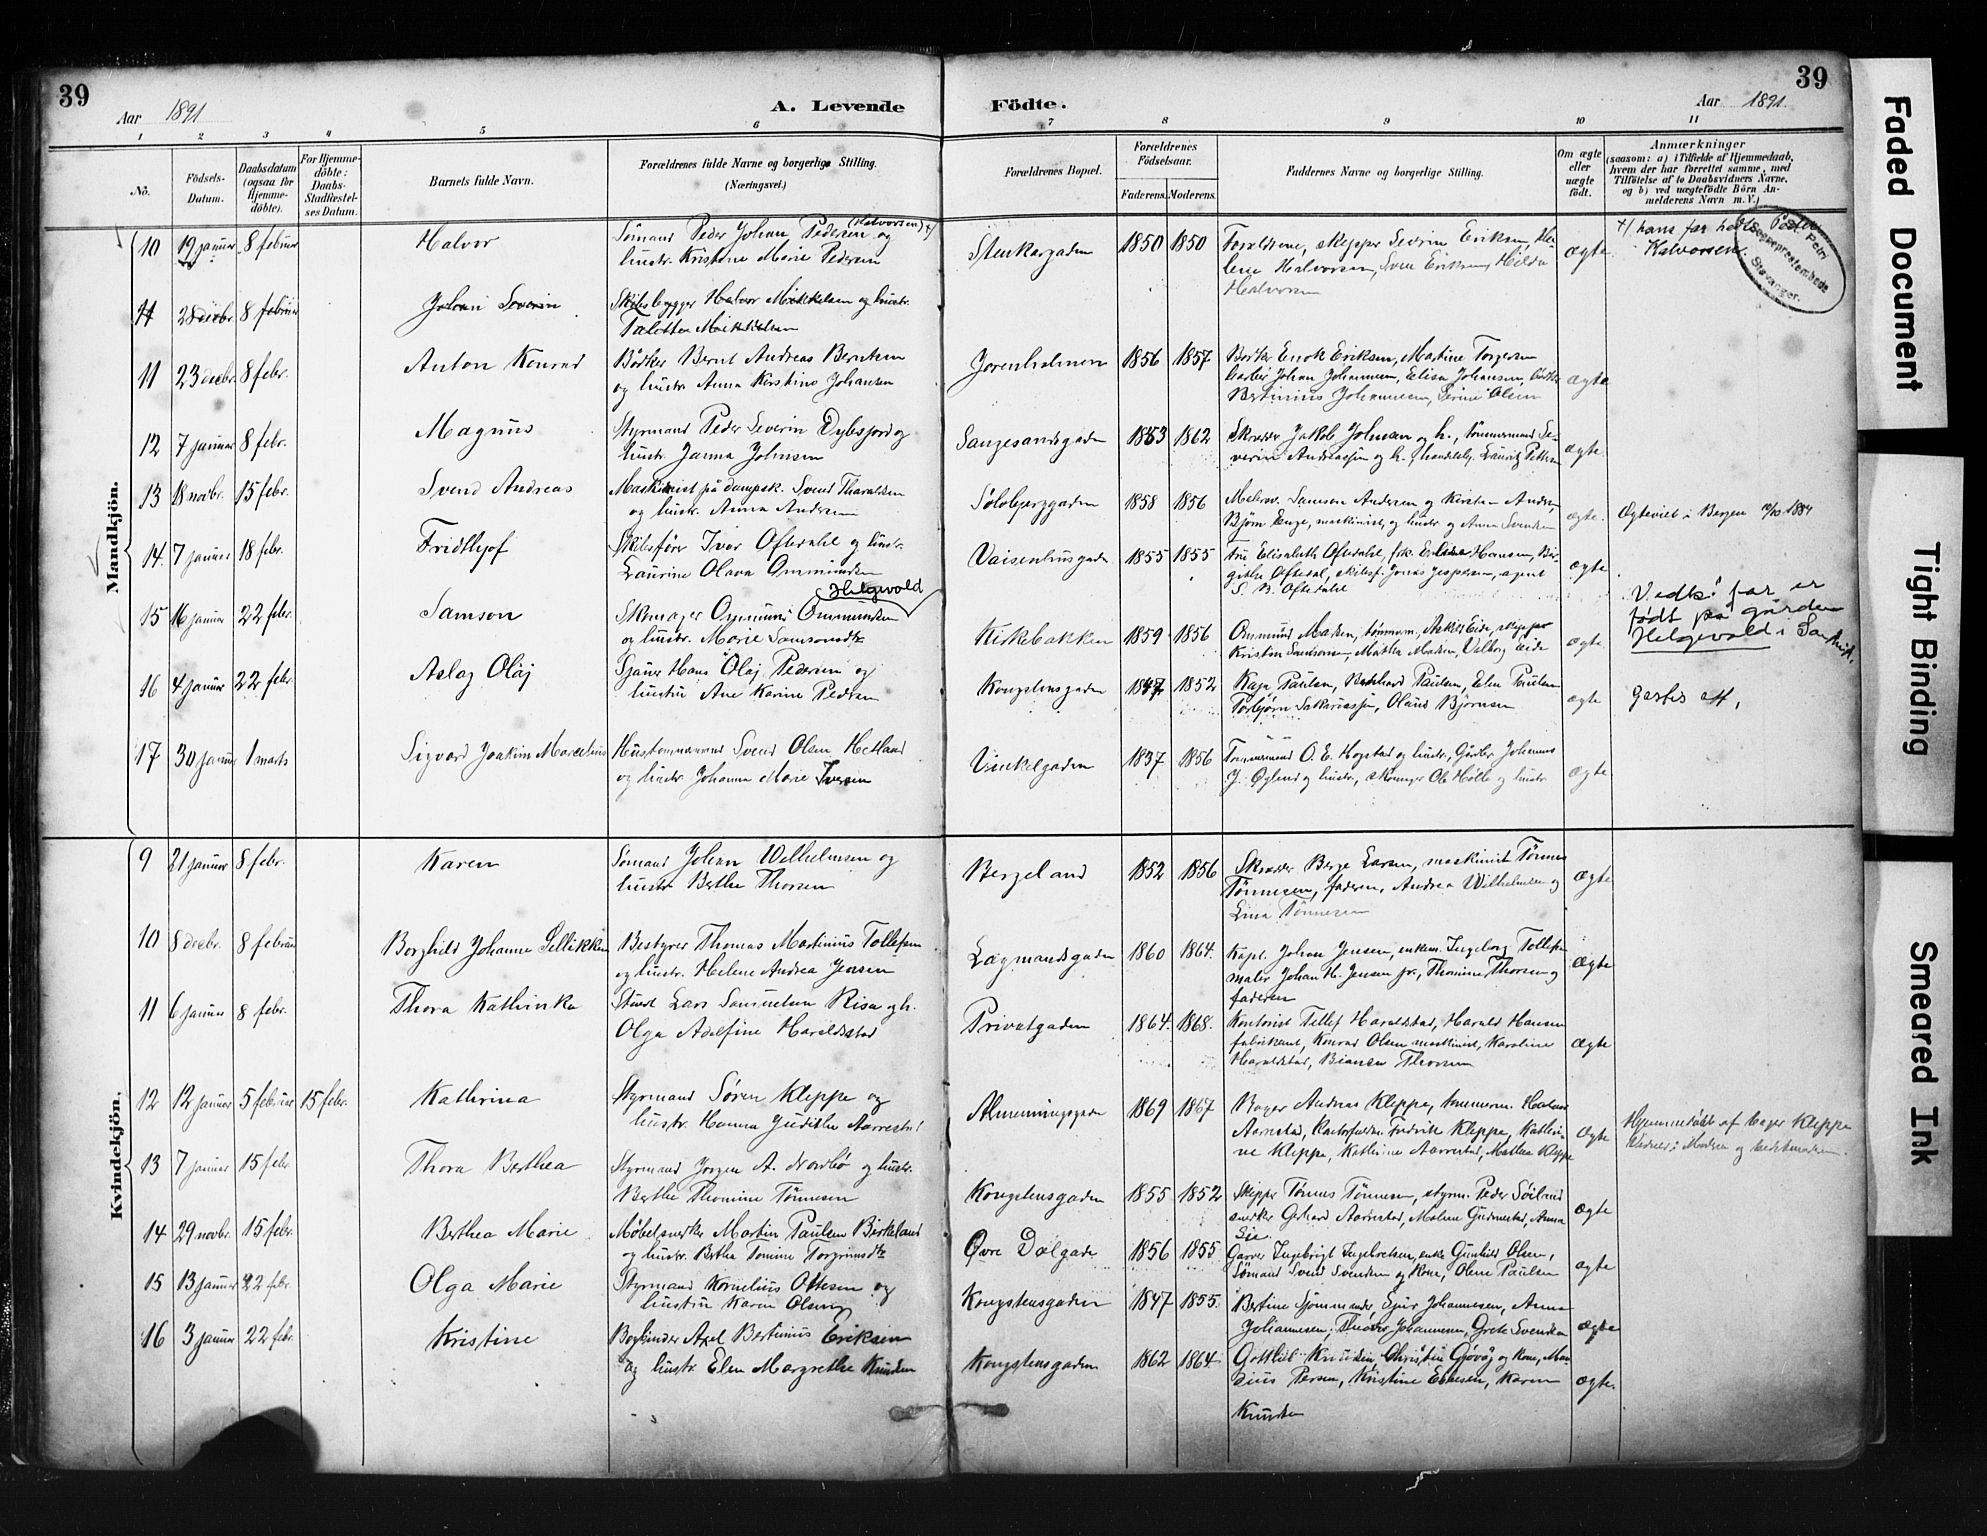 39
39
Aar 1891
A. Levende Födte.
Aar 1891
1 2 3 4 5 6 7 8 9 10 11
No.
Födsels-Datum.
Daabsdatum (ogsaa for Hjemme-döbte).
For Hjemme-döbte: Daabs-Stadfæstel-ses Datum.
Barnets fulde Navn.
Forældrenes fulde Navne og borgerlige Stilling. (Næringsvei.)
Forældrenes Bopæl.
Forældrenes Födselsaar.
Faderens. Moderens.
Faddernes Navne og borgerlige Stilling.
Om ægte eller uægte født.
Anmærkninger
(saasom: a) i Tilfælde af Hjemmedaab, hvem der har forrettet samme, med Tilföielse af to Daabsvidners Navne, og b) ved uægtefödte Börn An-melderens Navn m. V.)
Mandkjön.
10 19 januar 8 februar Halvor Sømand Peder Johan Pedersen (Halvorsen) +/ og
hustr. Kristine Marie Pedersen
Stenkargaden 1850 1850 Forældrene, skipper Severin Eriksen, He-
lene Halvorsen, Sven Eriksen, Hilda
Halvorsen
ægte
+/ hans far hed Peder
Halvorsen.
Sogneprestembede St. Petri Stavanger.
11 28 decbr. 8 februar Johan Severin Skibsbygger Halvor Mikkelsen og hustr.
Taletta Mikkelsen
11 23 decbr. 8 febr. Anton Konrad Bødker Bernt Andreas Berntsen
og hustr. Anna Kirstine Johansen
Jorenholmen 1856 1857 Bødker Enok Eriksen, Martine Torgersen
barber Johan Johannesen, Elisa Johansen,
Bertinius Johannesen, Serine Olsen
ægte
12 7 januar 8 febr. Magnus Styrmand Peder Severin Dybesjord og
hustr. Janna Johnsen
1853 1862 Skræder Jakob Johnsen og h., tømmermand Se-
verin Andreassen og h., handelsb. Lauritz Pettersen
ægte
13 18 novbr. 15 febr. Svend Andreas Maskinist på dampsk. Svend Tharaldsen
og hustr. Anna Andersen
Sølvberggaden 1858 1856 Samson Andersen og Kirsten Andersen,
Bjørn Enge, maskinist, og hustr og Anna Svendsen
ægte. Ægteviet i Bergen 12/10 1884
14. 7 januar 18 febr. Fridthjof Skibsfører Ivar Oftedahl og hustr.
Laurine Olava Ommundsen
Vaisenhusgaden 1855 1855 Fru Elisabeth Oftedahl, frk. Eline Hansen, Bir-
githe Oftedal, skibsf. Jonas Jespersen, agent
S. B. Oftedahl
ægte
15 16 januar 22 febr. Samson Skomager Ommund Ommundsen (Helgevold
og hustr. Marie Samsonsdtr
Kirkebakken 1859 1856 Ommund Madsen, tømmerm, Askild Eide, skipper
Kristen Samsonsen, Martha Madsen, Valborg Eide
ægte
Vedk! far er
født på gården
Helgevold i Sandnes.
16 4 januar 22 febr. Aslag Olaj Sjauer Hans Olaj Pedersen og
hustru Ane Karine Pedersen
Kongstensgaden 1847 1852 Kaja Paulsen, Bernhard Paulsen, Elen Paulsen
Torbjørn Sakariassen, Olaus Bjørnsen
ægte
17 30 januar 1 marts Sigvard Joakim Marcelius Hustømmermand Svend Olsen Hetland
og hustr. Johanna Marie Iversen
Vinkelgaden 1837 1856 Tømmermand O. E. Hogstad og hustr, Gårdbr Johannes
J. Øglend og hustr, skomager Ole Holte og hustr
ægte
Kvindekjön.
9 21 januar 8 febr. Karen Sømand Johan Wilhelmsen og
hustr Berthe Thorsen
Bergeland 1852 1856 Skræder Berge Larsen, maskinist Tønnes
Tønnesen, faderen, Andrea Wilhelmsen og
Lina Tønnesen
ægte
10 8 decbr. 8 februar Borghild Johanne Sellikken Bestyrer Thomas Martinius Tollefsen
og hustr. Helene Andrea Jensen
Lagmandsgaden 1860 1864. Kapt. Johan Jensen, enkem. Ingeborg Tollefsen
maler Johan H. Jensen jr, Thomine Thorsen og
faderen
ægte
11 6 januar 8 febr. Thora Kathinka Stuert Lars Samuelsen Risa og h.
Olga Adelfine Haraldstad
Privatgaden 1864. 1868. Kontorist Tellef Haraldstad, Harald Hansen
fabrikant, Konrad Olsen maskinist, Karoline
Haraldstad, Bianca Thorsen
ægte
12 12 januar 5 februar 15 febr. Kathrina Styrmand Søren Kleppe og
hustr. Hanna Judithe Aarrestad
Almenningsgade 1869 1867 Bager Andreas Kleppe, tømmerm. Halvor
Aarrestad, Fredrik Kleppe, Kathri-
ne Kleppe, Kathrine Aarrestad, Mathea Kleppe
ægte
Hjemmedøbt af bager Kleppe
Vidner: Moderen og bedstemoderen.
13 7 januar 15 febr. Thora Berthea Styrmand Jørgen A. Nordbø og hustr.
Berthe Thomine Tønnesen
Kongstensgaden 1855 1852 Skipper Tønnes Tønnesen, styrm. Peder Søiland
snedker Gerhard Aarrestad, Malene Gudmestad, Anna
Lie.
ægte
14 29 novbr. 15 febr. Berthea Marie Møbelsnedker Martin Paulsen Birkeland
og hustr. Bertha Tomine Torgrimsdtr
Øvre Dalgade 1856 1855 Garver Ingebrigt Ingebretsen, enke Gunhild Olsen,
Sømand Svend Svendsen og kone, Olene Paulsen
ægte
15 13 januar 22 febr. Olga Marie Styrmand Kornelius Ottesen og
hustru Karen Olsen
Kongstensgaden 1847 1855. Bertine Sjømmander, Sjur Johannesen, Anna
Johannesen, Theodor Johannesen, Grete Svendsen
ægte
16 3 januar 22 febr. Kristine Bogbinder Axel Bertinius Eriksen
og hustr. Elen Margrethe Knudsen
Kongstensgaden 1862 1864 Gottlieb Knudsen, Christen Gjøvåg og kone, Ma-
rius Persen, Kristine Ebbesen, Karen
Knudsen
ægte.
Faded Document
Tight Binding
Smeared Ink